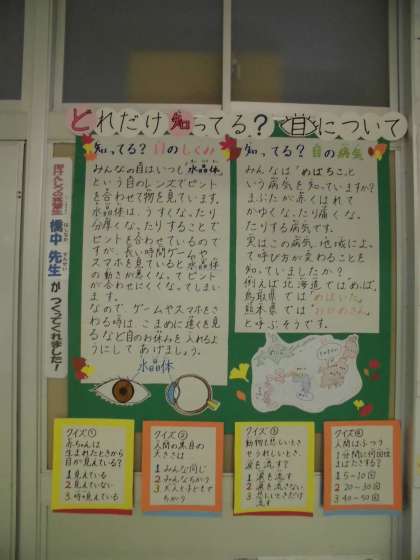 どれだけ知ってる？目について
知ってる？目のしくみ
みんなの目はいつも水晶体
という目のレンズでピント
を合わせて物を見ています。
水晶体は、うすくなったり
分厚くなったりすることで
ピントを合わせているので
すが、長い時間ゲームや
スマホを見ていると水晶体
の動きが悪くなってピント
が合わせにくくなってしまい
ます。
なので、ゲームやスマホをさ
わる時は、こまめに遠くを見
るなど目のお休みを入れるよ
うにしてあげましょう。
水晶体
知ってる？目の病気
みんなは「めばちこ」と
いう病気を知っていますか？
まぶたが赤くはれて
かゆくなったり痛くなっ
たりする病気です。
実はこの病気、地域によっ
て呼び方が変わることを
知っていましたか？
例えば北海道では「めっぱ」、
鳥取県では「めばいた」、
熊本県では「おひめさん」
と呼ぶそうです。
橋中先生
がつくってくれました！
クイズ①
赤ちゃんは
生まれたときから
目が見えている？
1 見えている
2 見えていない
3 時々見えている
クイズ②
人間の黒目の
大きさは
1 みんな同じ
2 みんなちがう
3 大人と子どもで
ちがう
クイズ③
動物も悲しいとき
やうれしいとき、
涙を流す？
1 涙を流す
2 涙を流さない
3 悲しいときだけ
流す
クイズ④
人間はふつう
1分間に何回位
まばたきする？
1 5〜10回
2 20〜30回
3 40〜50回